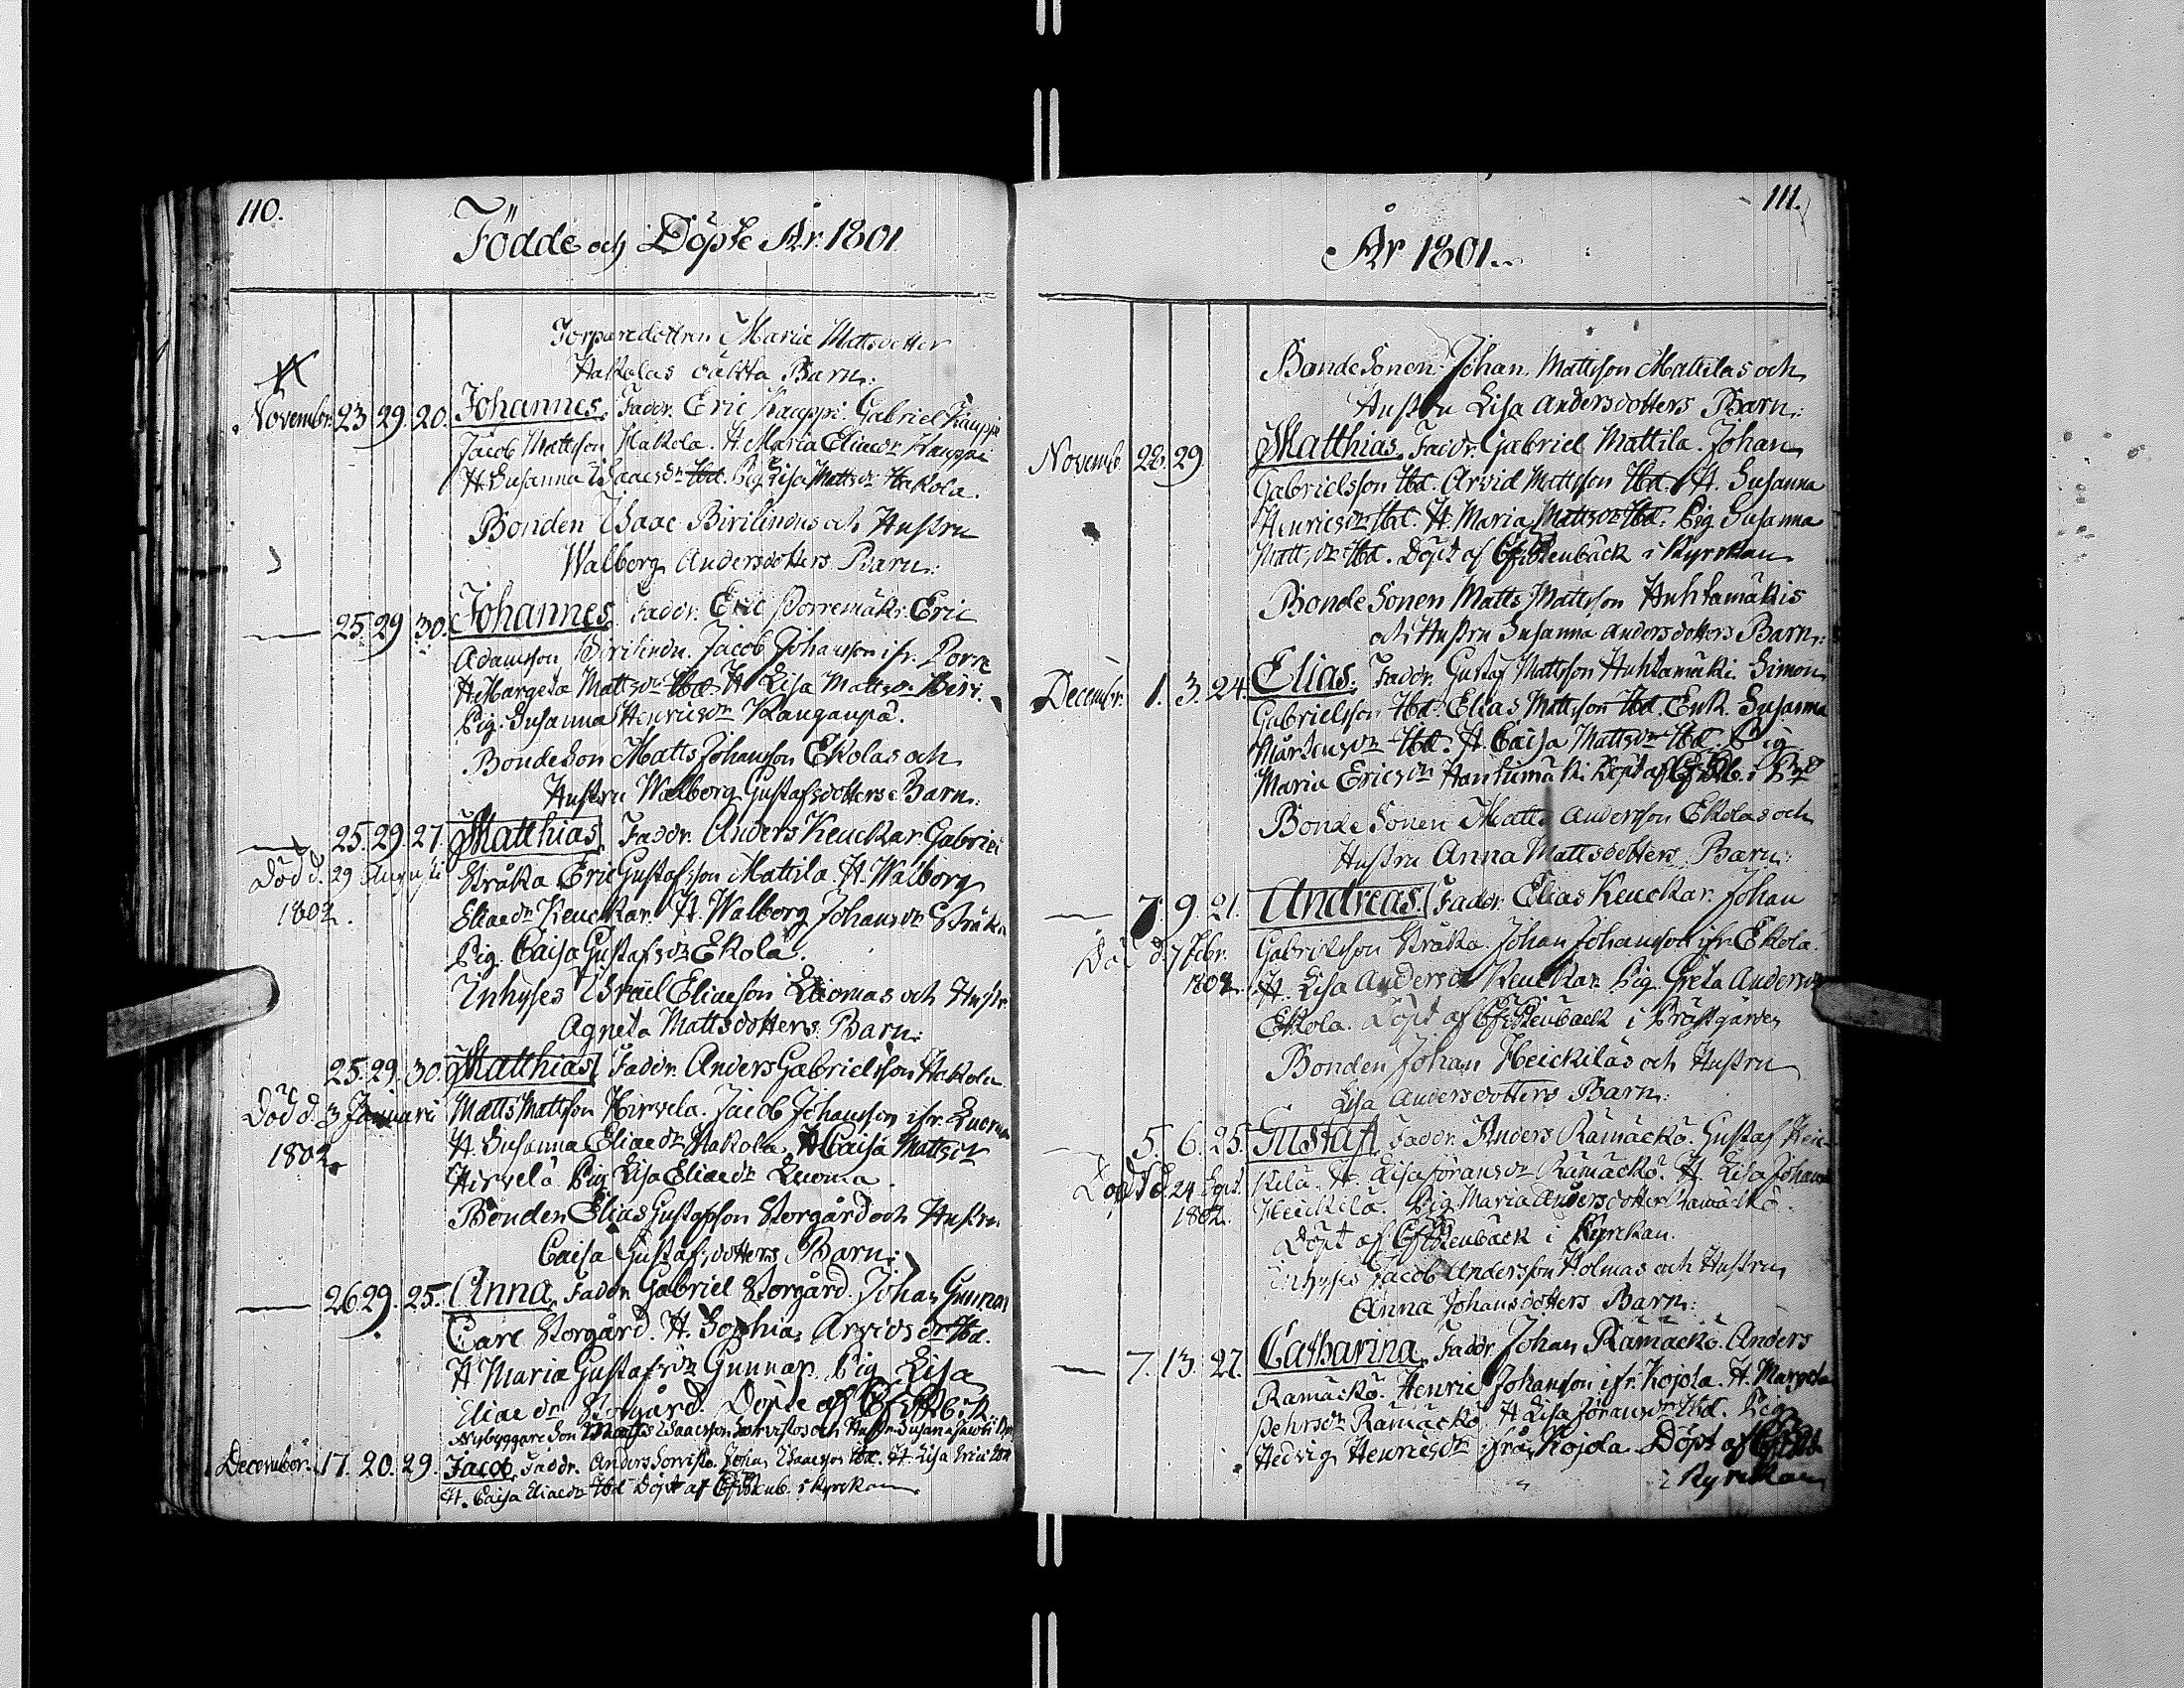 110.
Födde och Döpte År 1801
Torparedottren Maria Mattsdotter
Hakolas oäkta Barn:
Novembr. 23 29. 20. Johannes. Faddr. Eric Kauppi. Gabriel Kauppi
Jacob Mattson Hakola. H. Maria Eliædr Kauppi
H. Susanna Isaacsdr Ibd. Pig. Lisa Mattsdr Hakola.
Bonden Isaac Birilinous och Hustru
Walborg Andersdotters Barn:
25. 29 30. Johannes. Faddr. Eric Porremäki. Eric
Adamsson Birilindu. Jacob Johansson ifr. Porre
H. Margeta Mattsdr Ibd. H. Lisa Mattsdr Biri.
Pig. Susanna Henricsdr Kangaspä.
Bondeson Matts Johansson Ekolas och
Hustru Walborg Gustafsdotters Barn:
25. 29. 27. Matthias. Faddr. Anders Keuckar. Gabriel
Död d. 29 Augusti
1802.
Stråka. Eric Gustafsson Mattila. H. Walborg
Eliædr Keuckar. H. Walborg Johansdr Stråka
Pig. Caisa Gustafsdr Ekola.
Inhyses Israel Eliaeson Luomas och Hustr.
Agneta Mattsdotters Barn:
25. 29. 30. Matthias. Faddr. Anders Gabrielsson Hakola
Död d. 3 Januari
1802.
Matts Mattson Hirvela. Jacob Johansson ifr. Luoma
H. Susanna Eliædr Hakola. H. Caisa Mattsdr
Hirvelä Pig. Lisa Eliædr Luoma.
Bonden Elias Gustafsson Storgård och Hustru
Caisa Gustafsdotters Barn:
26 29. 25. Anna. Faddr. Gabriel Storgård. Johan Gunnar
Carl Storgård. H. Sophia Arvidsdr Ibd.
H Maria Gustafsdr Gunnar. Pig. Lisa
Eliædr Storgård. Döpte af
Nybyggare Son Matts Isaacsson och Hustr. Susanna
December. 17. 20. 29. Jacob. Faddr. Anders Johan Isaacsson Ibd. H. Lisa
H. Caisa Eliædr Ibd Döpt af i kyrckan
111.
År 1801.
Bonde Sonen Johan Mattsson Mattilas och
Hustru Lisa Andersdotters Barn:
Novemb. 28. 29. Matthias. Faddr. Gabriel Mattila. Johan
Gabrielsson Ibd. Arvid Mattsson Ibd. H. Susanna
Henricsdr Ibd. H. Maria Mattsdr Ibd. Pig. Susanna
Mattsdr Ibd. Döpt af i Kyrckan
Bonde Sonen Matts Mattsson Huhtamäkis
och Hustru Susanna Andersdotters Barn:
Decembr. 1. 3. 24. Elias. Faddr. Gustaf Mattsson Huhtamäki. Simon
Gabrielsson Ibd. Elias Mattsson Ibd. Enk. Susanna
Mårtensdr Ibd. H. Caisa Mattsdr Ibd. Pig
Maria Ericsdr Döpt af
Bonde Sonen Matts Andersson Ekolas och
Hustru Anna Mattsdotters Barn:
7. 9. 21. Andreas. Faddr. Elias Keuckar. Johan
Död d. 7 Febr.
1802.
Gabrielsson Stråka. Johan Johansson ifr Ekola.
H. Lisa Andersdr Keuckar. Pig. Greta Andersdr
Ekola. Döpt af i Prästgården
Bonden Johan Heickiläs och Hustru
Lisa Andersdotters Barn:
5. 6. 25. Gustaf. Faddr. Anders Ramäckö. Gustaf Heic-
Död d. 24 Sept.
1802.
kilä. H. Lisa Göransdr Ramäckö. H. Lisa Johansdr
Heickilä. Pig. Maria Andersdotter Ramäckö.
Döpt af i Kyrckan.
Inhyses Jacob Andersson Holmas och Hustru
Anna Johansdotters Barn:
7. 13. 27. Catharina. Faddr. Johan Ramäckö. Anders
Ramäckö. Henric Johansson ifr. Kojola. H. Margeta
Pehrsdr Ramäckö. H. Lisa Göransdr Ibd. Pig
Hedvig Henricsdr ifrån Kojola. Döpt af
i Kyrckan